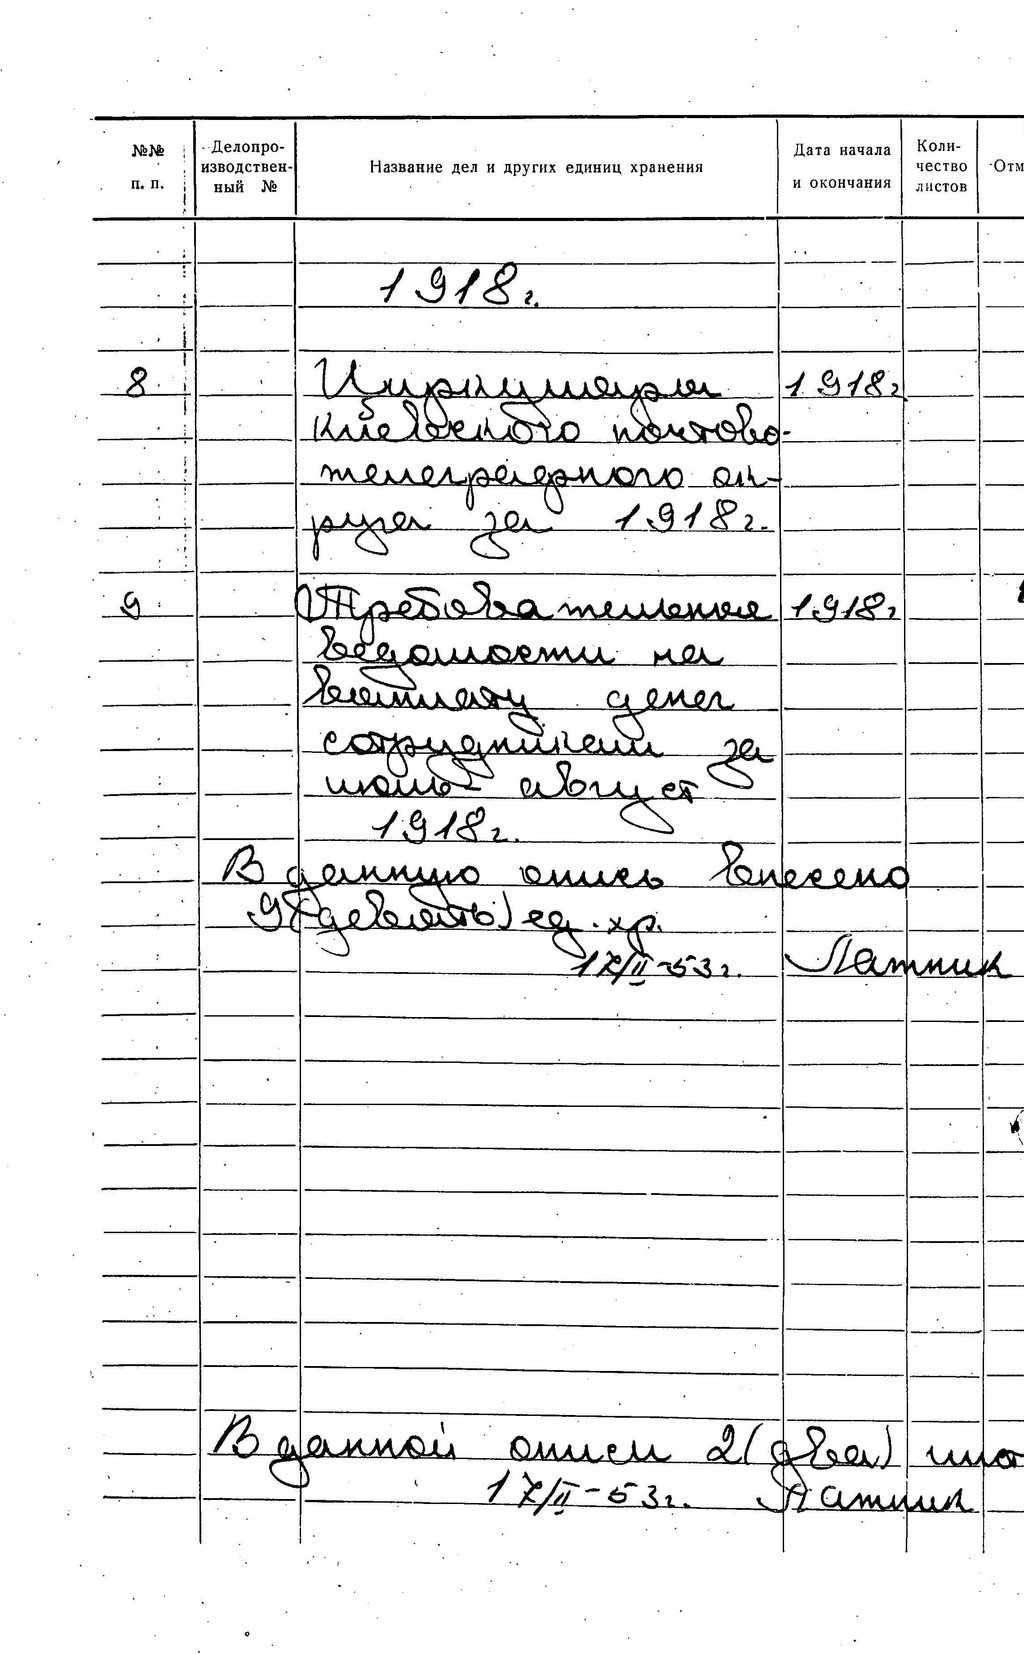 №№ п. п. Делопро-изводствен-ный № Название дел и других единиц хранения Дата начала и окончания Коли-чество листов Отм
1918г.
8 Циркуляры 1918г
Киевского почтово-
телеграфного ок-
руга за 1918г.
9 Требовательные 1918г
ведомости на
выплату денег
сотрудникам за
июль-август
1918г.
В данную опись внесено
9 (девять) ед. хр.
17/II-53г. Латник
В данной описи 2 (два)
17/II-53г. Латник